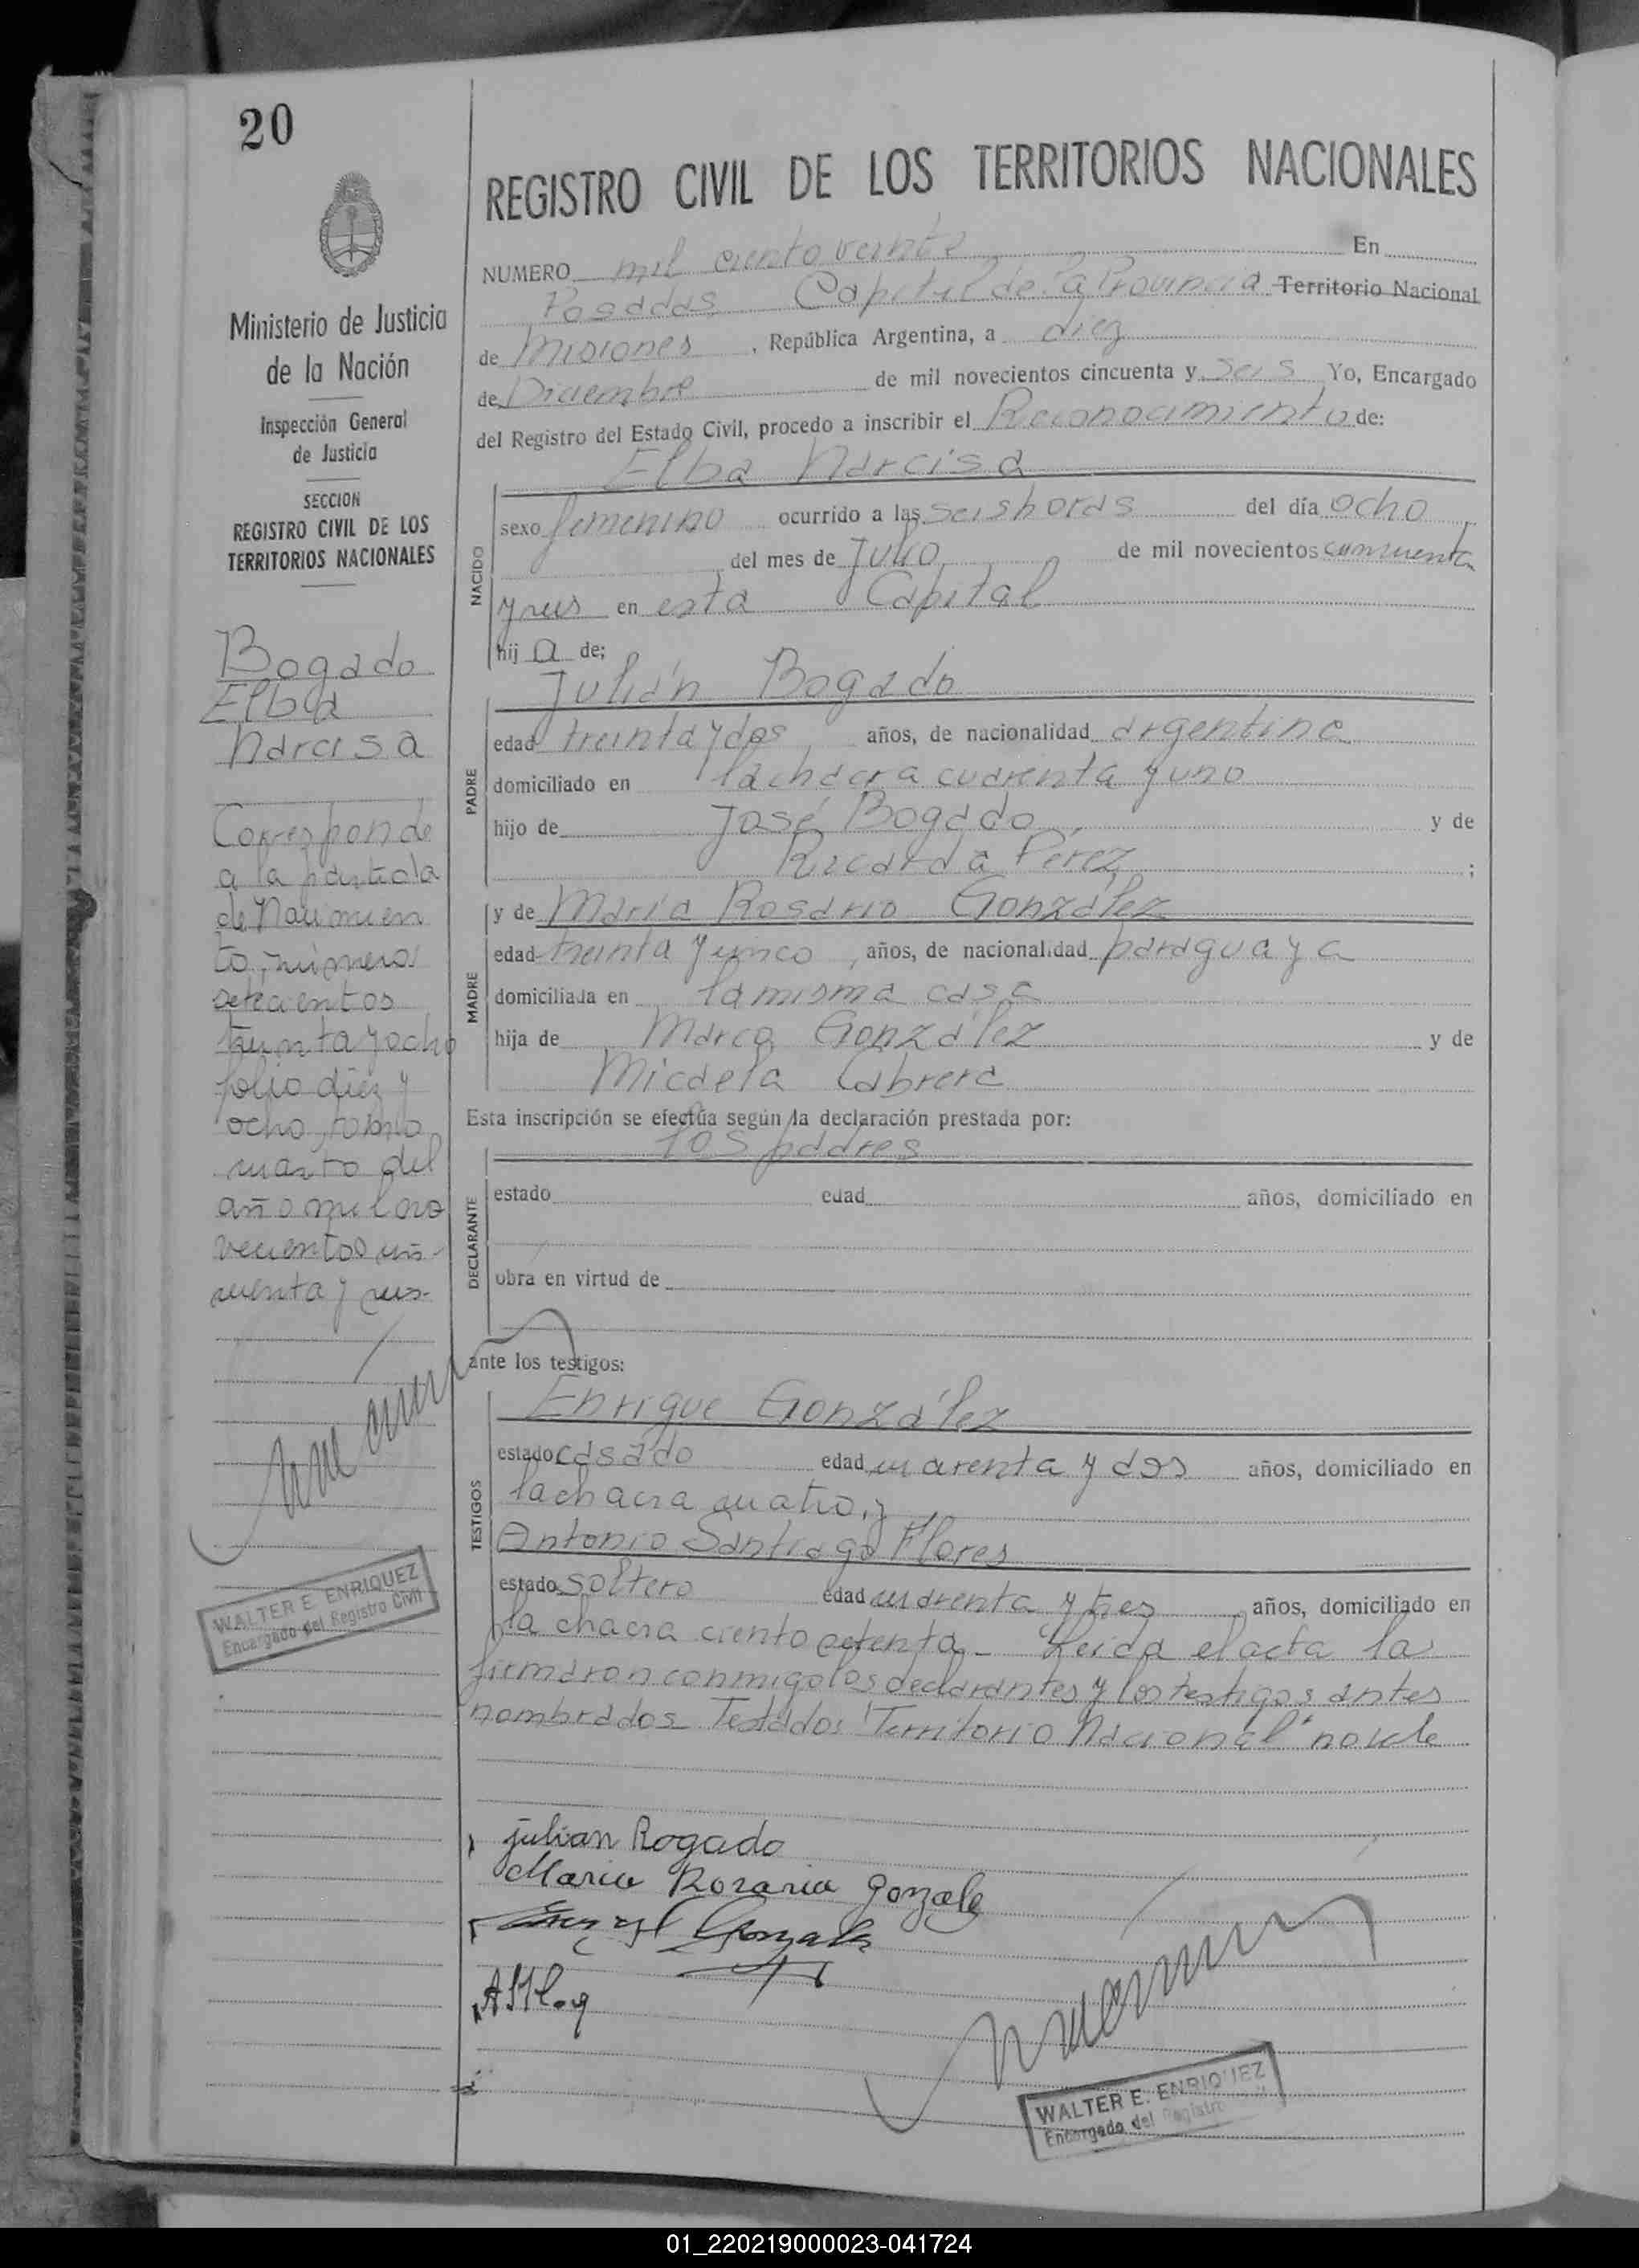 20
Ministerio de Justicia
de la Nación
Inspección General
de Justicia
SECCION
REGISTRO CIVIL DE LOS
TERRITORIOS NACIONALES
Bogado
Elba
Narcisa
Corresponde
a la partida
de Nacimien
to, número
setecientos
treinta y ocho
folio diez y
ocho, tomo
cuarto del
año mil no
vecientos cin-
cuenta y seis-
WALTER E. ENRIQUEZ
Encargado del Registro Civil
REGISTRO CIVIL DE LOS TERRITORIOS NACIONALES
NUMERO mil ciento veinte En
Posadas Capital de la Provincia Territorio Nacional
de Misiones, República Argentina, a diez
de Diciembre de mil novecientos cincuenta y seis Yo, Encargado
del Registro del Estado Civil, procedo a inscribir el Reconocimiento de:
Elba Narcisa
NACIDO
sexo femenino ocurrido a las seis horas del día ocho
del mes de Julio de mil novecientos cincuenta
y seis en esta Capital
hij a de:
Julián Bogado
PADRE
edad treinta y dos años, de nacionalidad argentina
domiciliado en la chacra cuarenta y uno
hijo de José Bogado, y de
Ricarda Perez ;
y de María Rosario González
MADRE
edad treinta y cinco, años, de nacionalidad paraguaya
domiciliada en la misma casa
hija de Marco González y de
Micaela Cabrera
Esta inscripción se efectúa según la declaración prestada por:
los padres
DECLARANTE
estado edad años, domiciliado en
obra en virtud de
ante los testigos:
Enrique González
TESTIGOS
estado casado edad cuarenta y dos años, domiciliado en
la chacra cuatro, y
Antonio Santiago Flores
estado soltero edad cuarenta y tres, años, domiciliado en
la chacra ciento setenta.- Leida el acta la
firmaron conmigo los declarantes y los testigos antes
nombrados. Testados "Territorio Nacional" no vale
julian Bogado
Maria Rosario Gonzale
WALTER E. ENRIQUEZ
Encargado del Registro
01_220219000023-041724